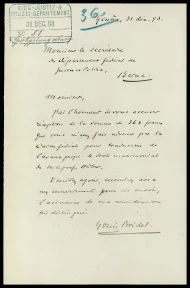 EIDG. JUSTIZ- &
POLIZEI-DEPARTEMENT
31 DEC. 93
36
Genève, 31 déc. 93.
Monsieur le Secrétaire
du Département fédéral de
Justice et Police,
Berne.
Monsieur,
J'ai l'honneur de vous accuser
réception de la somme de
que vous m'avez fait adresser par la
pour traduction de
l'avant-projet de
de
Veuillez agréer, Monsieur, avec
mes remerciements pour cet envoi,
l'assurance de ma considération
très distinguée
Bridel.